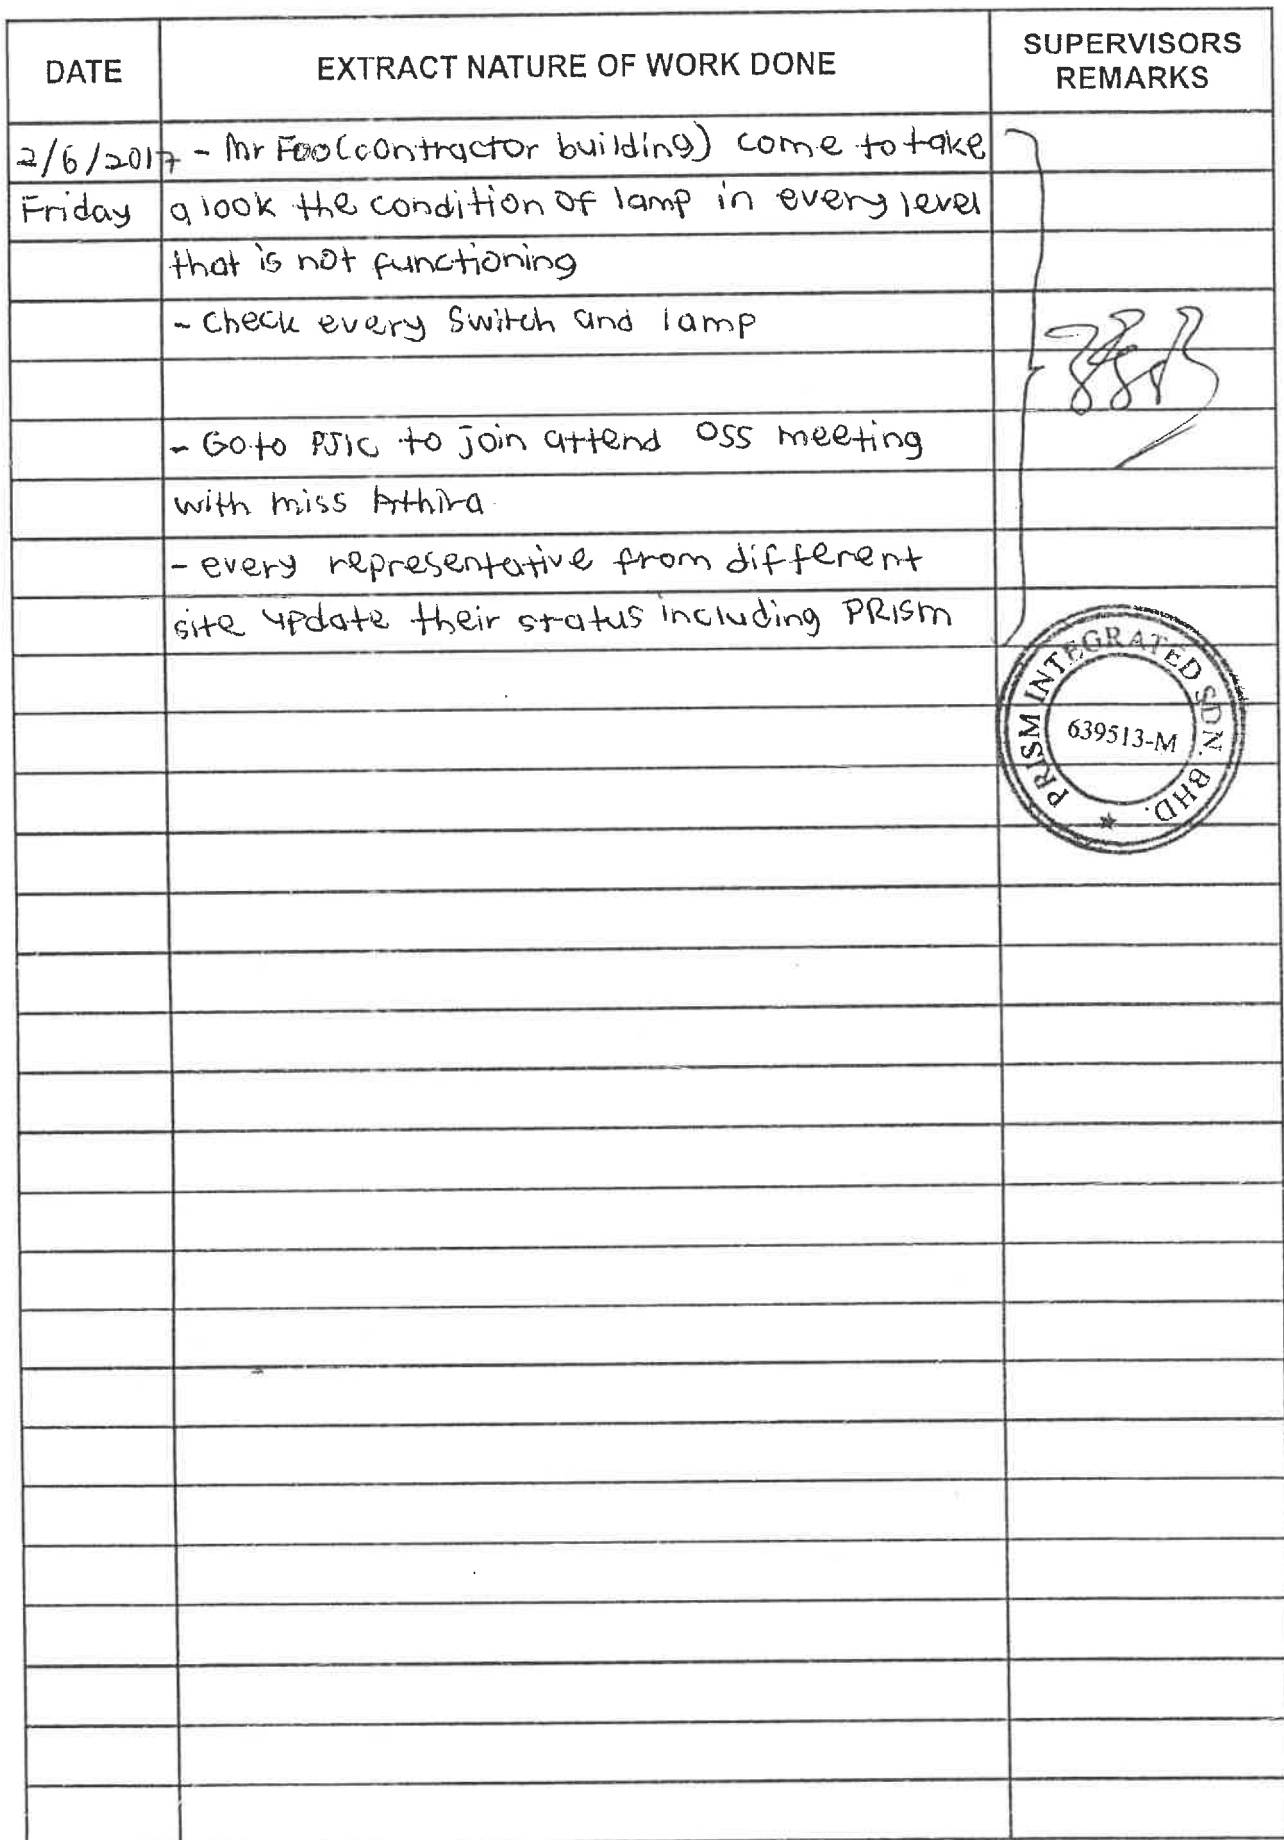 DATE EXTRACT NATURE OF WORK DONE SUPERVISORS REMARKS
2/6/2017 - Mr Foo (contractor building) come to take
Friday a look the condition of lamp in every level
that is not functioning
- Check every Switch and lamp
- Go to PJIC to join attend OSS meeting
with miss Athira
- every representative from different
site update their status including PRISM
PRISM INTEGRATED SDN. BHD.
639513-M